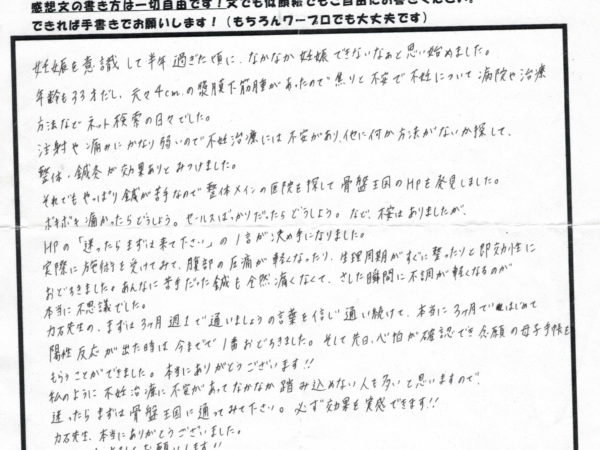 感想文の書き方は一切自由です！文でも似顔絵でもご自由にお書きください。
できれば手書きでお願いします！（もちろんワープロでも大丈夫です）
妊娠を意識して半年過ぎた頃に、なかなか妊娠できないなぁと思い始めました。
年齢も33才だし、元々4cmの漿膜下筋腫があったので焦りと不安で不妊について病院や治療
方法などネット検索の日々でした。
注射や痛みにかなり弱いので不妊治療には不安があり、他に何か方法がないか探して、
整体・鍼灸が効果ありとみつけました。
それでもやっぱり鍼が苦手なので整体メインの医院を探して骨盤王国のHPを発見しました。
ボキボキ痛かったらどうしよう。セールスばっかりだったらどうしよう。など、不安はありましたが、
HPの「迷ったらまずは来て下さい」の1言が決め手になりました。
実際に施術を受けてみて、腹部の圧痛が軽くなったり、生理周期がすぐに整ったりと即効性に
おどろきました。あんなに苦手だった鍼も全然痛くなくて、さした瞬間に不調が軽くなるのが
本当に不思議でした。
力石先生の、まずは3ヶ月週1で通いましょうの言葉を信じ通い続けて、本当に3ヶ月ではじめて
陽性反応が出た時は今までで1番おどろきました。そして先日、心拍が確認でき念願の母子手帳を
もらうことができました。本当にありがとうございます!!
私のように不妊治療に不安があってなかなか踏み込めない人も多いと思いますので、
迷ったらまずは骨盤王国に通ってみて下さい。必ず効果を実感できます!!
力石先生、本当にありがとうございました。